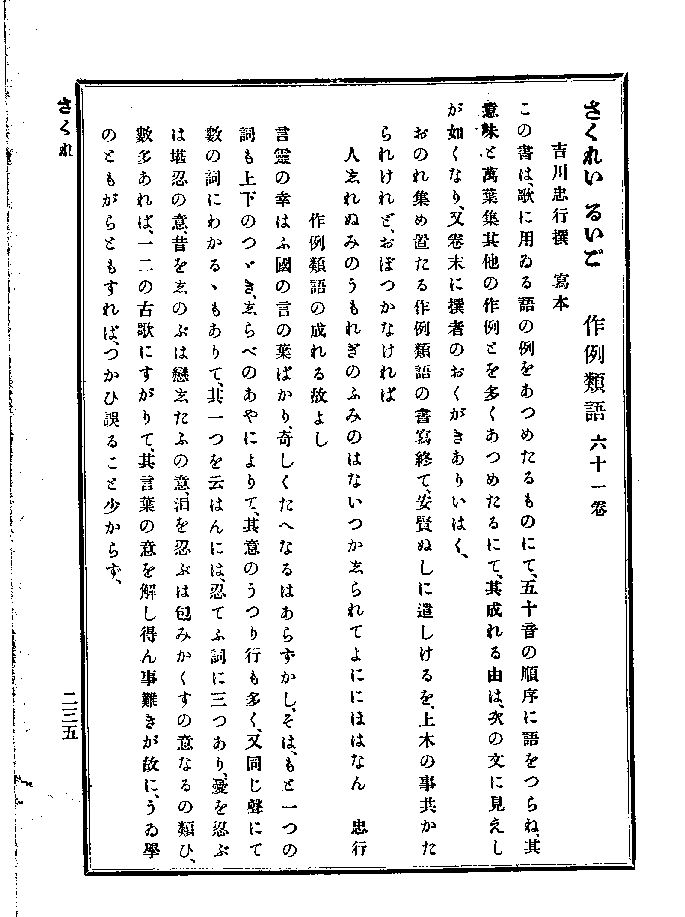 さくれい るいご　作例類語 六十一卷
吉川忠行撰　寫本
この書は、歌に用ゐる語の例をあつめたるものにて、五十音の順序に語をつらね、其
意味と萬葉集其他の作例とを多くあつめたるにて、其成れる由は、次の文に見えし
が如くなり、又卷末に撰者のおくがきありいはく、
おのれ集め置たる作例類語の書寫終て、安賢ぬしに遣しけるを、上木の事共かた
られけれど、おぼつかなければ
人ゑれぬみのうもれぎのふみのはないつかゑられてよににほはなん　忠行
作例類語の成れる故よし
言靈の幸はふ國の言の葉ばかり、奇しくたへなるはあらずかし、そは、もと一つの
詞も上下のつゞき、ゑらべのあやによりて、其意のうつり行も多く、又同じ聲にて
數の詞にわかるゝもありて、其一つを云はんには、忍てふ詞に三つあり、憂を忍ぶ
は堪忍の意、昔をゑのぶは戀ゑたふの意、泪を忍ぶは包みかくすの意なるの類ひ、
數多あれば、一二の古歌にすがりて、其言葉の意を解し得ん事難きが故に、うゐ學
のともがらともすれば、つかひ誤ること少からず、
さくれ
二三五